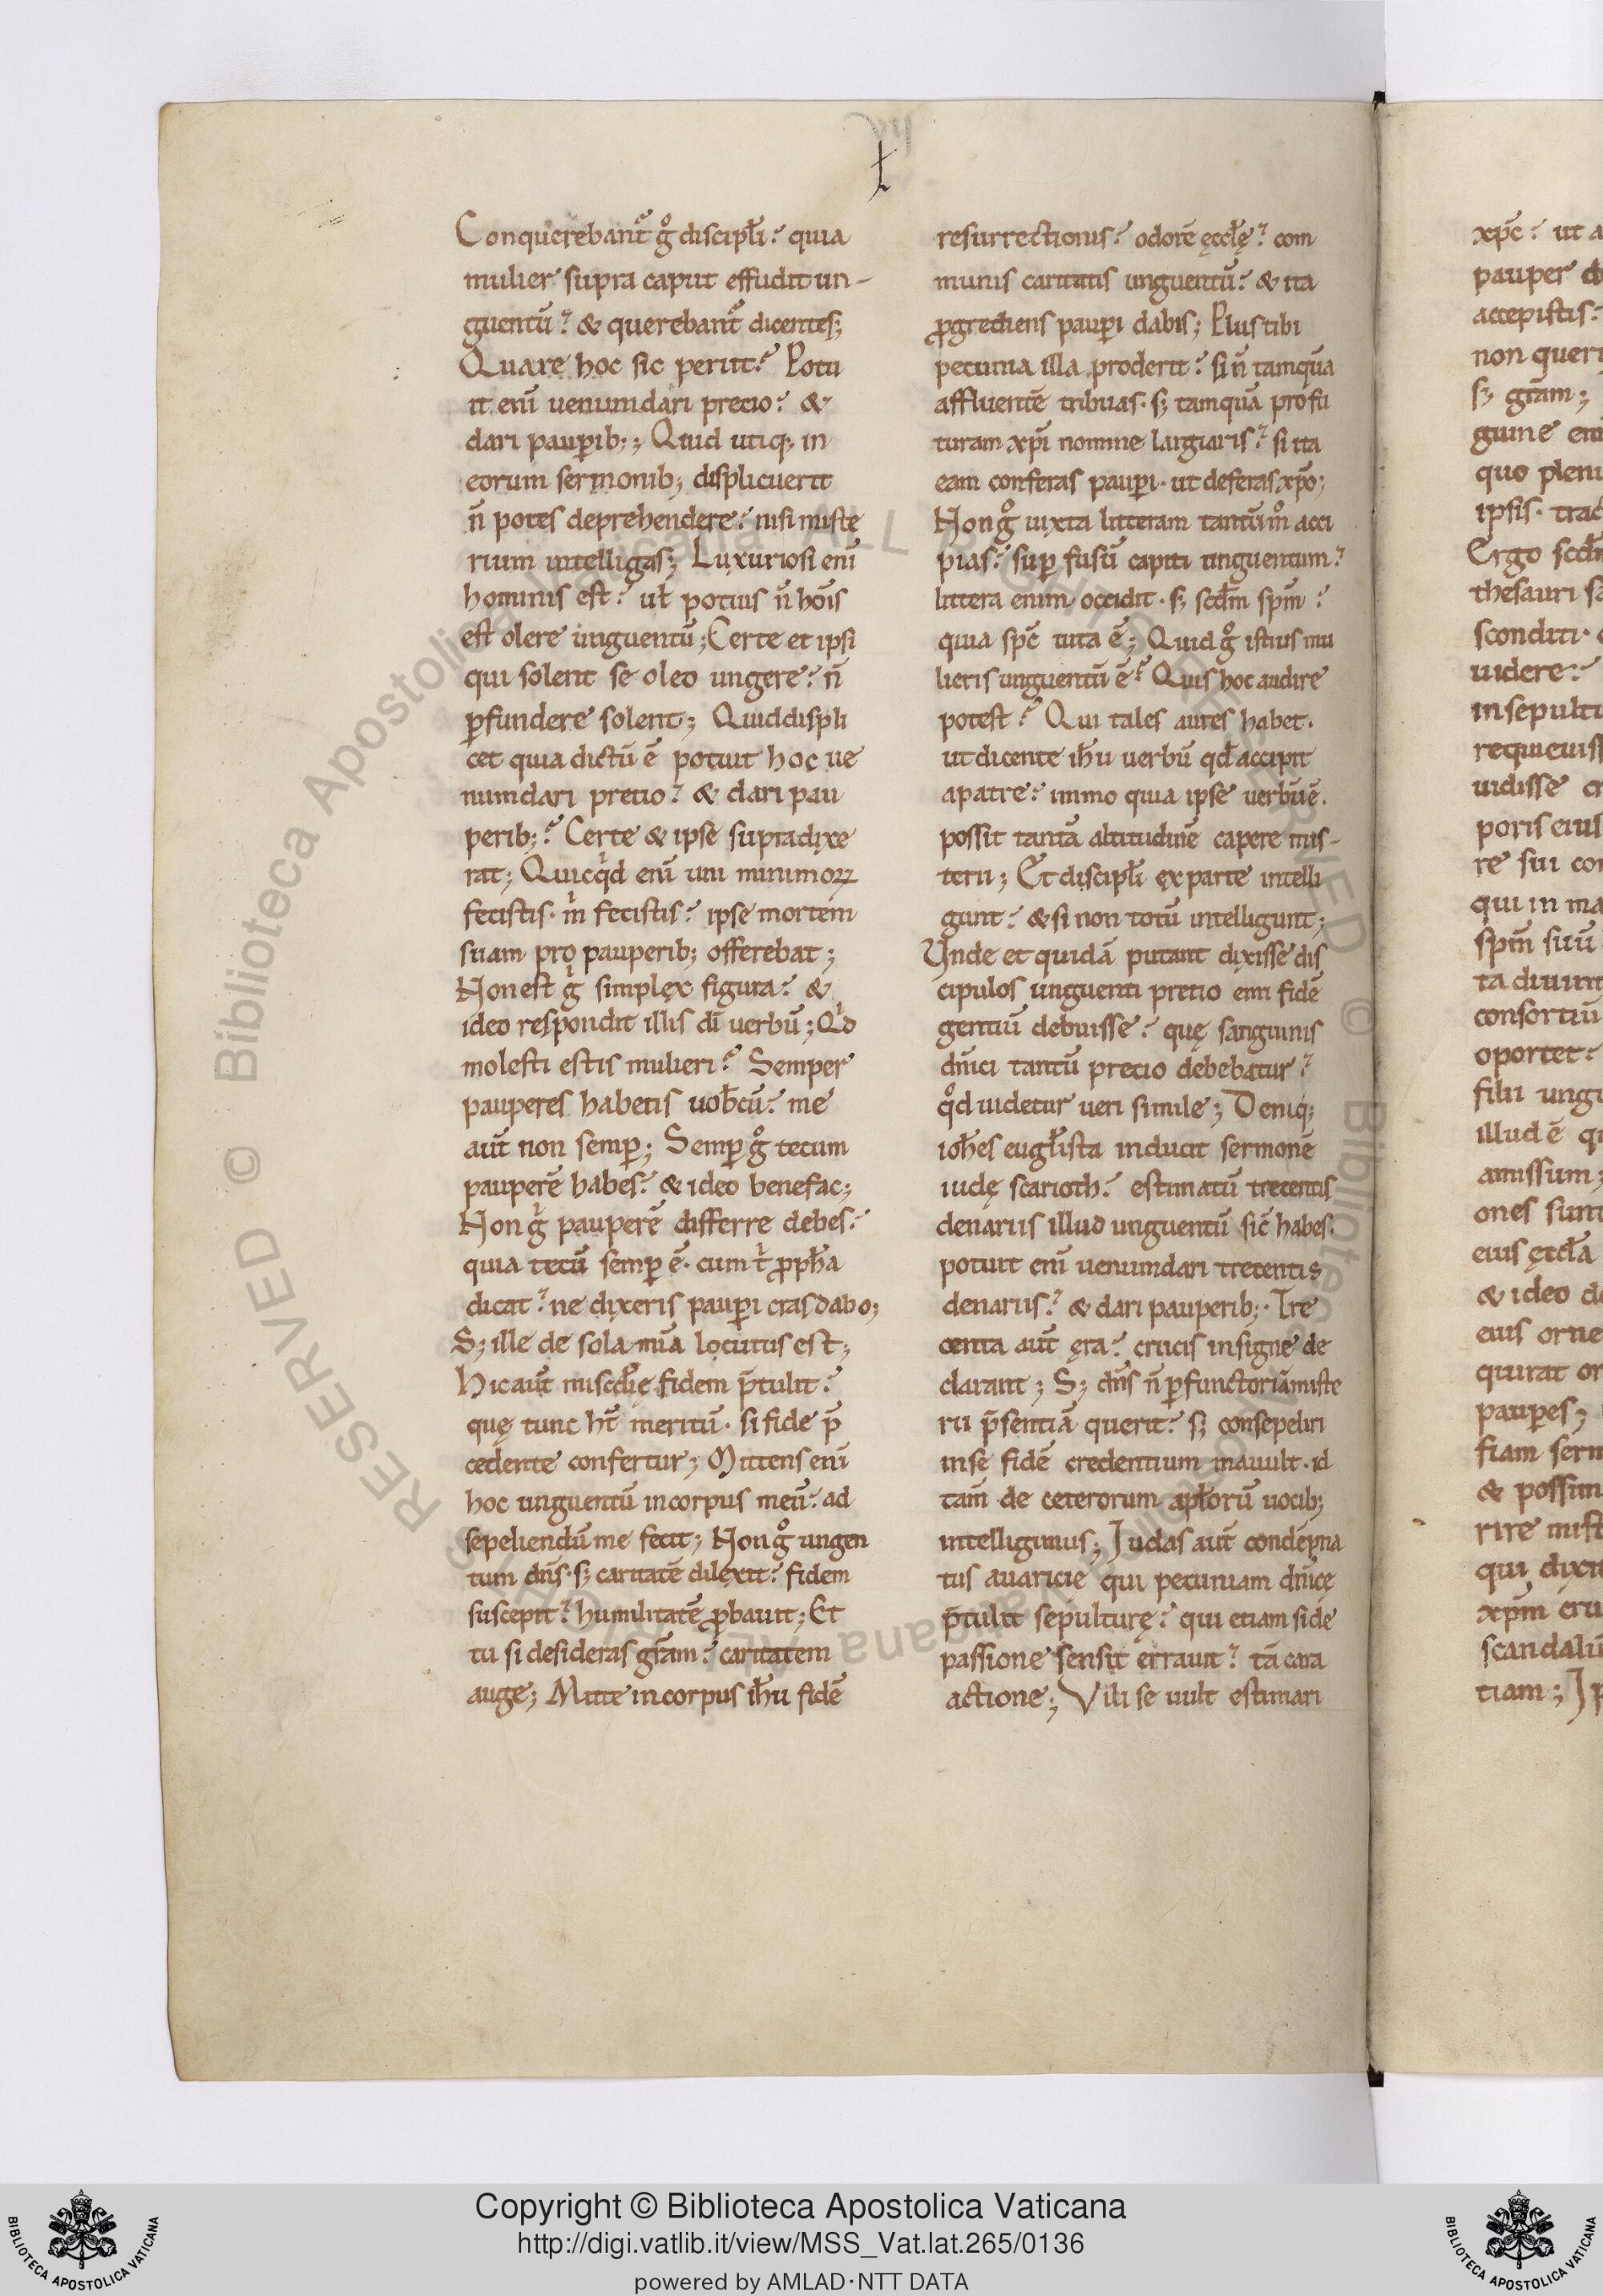 Conquerebant᷑ gͦ discipl̄i? quia
mulier supra caput effudit un-
guentū? & querebant᷑ dicentes;
Quare hoc sic periit? Potu
it eni̅ uenumdari precio? &
dari paup̱ib;; Quid utiq; in
eorum sermonib; displicuerit
n̄ potes deprehendere? nisi miste
rium intelligas; Luxuriosi eni̅
hominis est? ul̄ potius n̄ hoīs
est olere unguentū; Certe et ipsi
qui solent se oleo ungere? n̄
p̱fundere solent; Quid displi
cet quia dictū ē potuit hoc ue
numdari precio? & dari pau
perib;? Certe & ipse supra dixe
rat; Quicqͥd eni̅ uni minimoꝝ
fecistis· mͥ fecistis? ipse mortem
suam pro pauperib; offerebat;
Non est gͥ simplex figura? &
ideo respondit illis dī uerbū; Qͥd
molesti estis mulieri? Semper
pauperes habetis uob̄cū? me
aut̄ non semp̱; Semp̱ gͦ tecum
pauperē habes? & ideo benefac;
Non gͥ pauperē differre debes?
quia tecū semp̱ ē· cum tͥ p̱ph̄a
dicat? ne dixeris paup̱i cras dabo;
S; ille de sola mīa locutus est;
Hic aut̄ misc̄dię fidem p̄tulit?
quę tunc ht̄ meritū· si fide p̄
cedente confertur; Mittens eni̅
hoc unguentū in corpus meū? ad
sepeliendū me fecit; Non gͦ ungen
tum dn̄s· s; caritatē dilexit? fidem
suscepit? humilitatē ꝓbauit; Et
tu si desideras grām? caritatem
auge; Mitte in corpus ih̄u fidē
resurrectionis? odorē ęccl̄ę? com
munis caritatis unguentū? & ita
ꝓgrediens paup̱i dabis; Plus tibi
pecunia illa proderit? si n̄ tamquā
affluentē tribuas· s; tamquā profu
turam xp̄i nomine largiaris? si ita
eam conferas paup̱i· ut deferas xp̄o;
Non gͦ iuxta litteram tantūmͦ acci
pias? sup̱ fusū capiti unguentum?
littera enim occidit· s; scd̄m sp̄m?
quia sp̄c uita ē; Quid gͦ istius mu
lieris unguentū ē? Quis hoc audire
potest? Qui tales aures habet·
ut dicente ih̄u uerbū qd̄ accipit
a patre? immo quia ipse uerbū ē·
possit tantā altitudinē capere mis-
terii; Et discipl̄i ex parte intelli
gunt? & si non totū intelligunt;
Unde et quidā putant dixisse dis
cipulos unguenti precio emi fidē
gentiū debuisse? quę sanguinis
dn̄ici tantū precio debebatur?
qͦd uidetur ueri simile; Deniq;
ioh̄es eugl̄ista inducit sermonē
iudę scarioth? estimatū trecentis
denariis illud unguentū sic̄ habes·
potuit eni̅ uenumdari trecentis
denariis? & dari pauperib;· Tre
centa aut̄ ęra? crucis insigne de
clarant; S; dn̄s n̄ p̱functoriā miste
rii p̄sentiā querit? s; consepeliri
in se fidē credentium mauult· id
tam̄ de ceterorum apl̄orū uocib;
intelligimus; Iudas aut̄ condēpna
tus auaricię qui pecuniam dn̄icę
p̄tulit sepulturę? qui etiam si de
passione sensit errauit? tā cara
actione; Vili se uult estimari
xp̄c? ut a
pauper
accepistis?
non quer
s; grām;
quo plen
ipsis· trac
Ergo scd̄m
thesauri sa
sconditi·
uidere?
in sepult
requieuiss
uidisse
poris eius
re sui cor
qui in ma
sp̄m suū
ta diuin
consortiū
oportet?
filii ungu
illud ē
amissum;
ones sunt
eius ęccl̄a
& ideo
eius orne
quirat or
paup̱es;
fiam serm
& possim
rire mist
qui dixit
xp̄m
scandalū
tiam; Ip
Copyright © Biblioteca Apostolica Vaticana
http://digi.vatlib.it/view/MSS_Vat.lat.265/0136
powered by AMLAD·NTT DATA
BIBLIOTECA APOSTOLICA VATICANA
BIBLIOTECA APOSTOLICA VATICANA